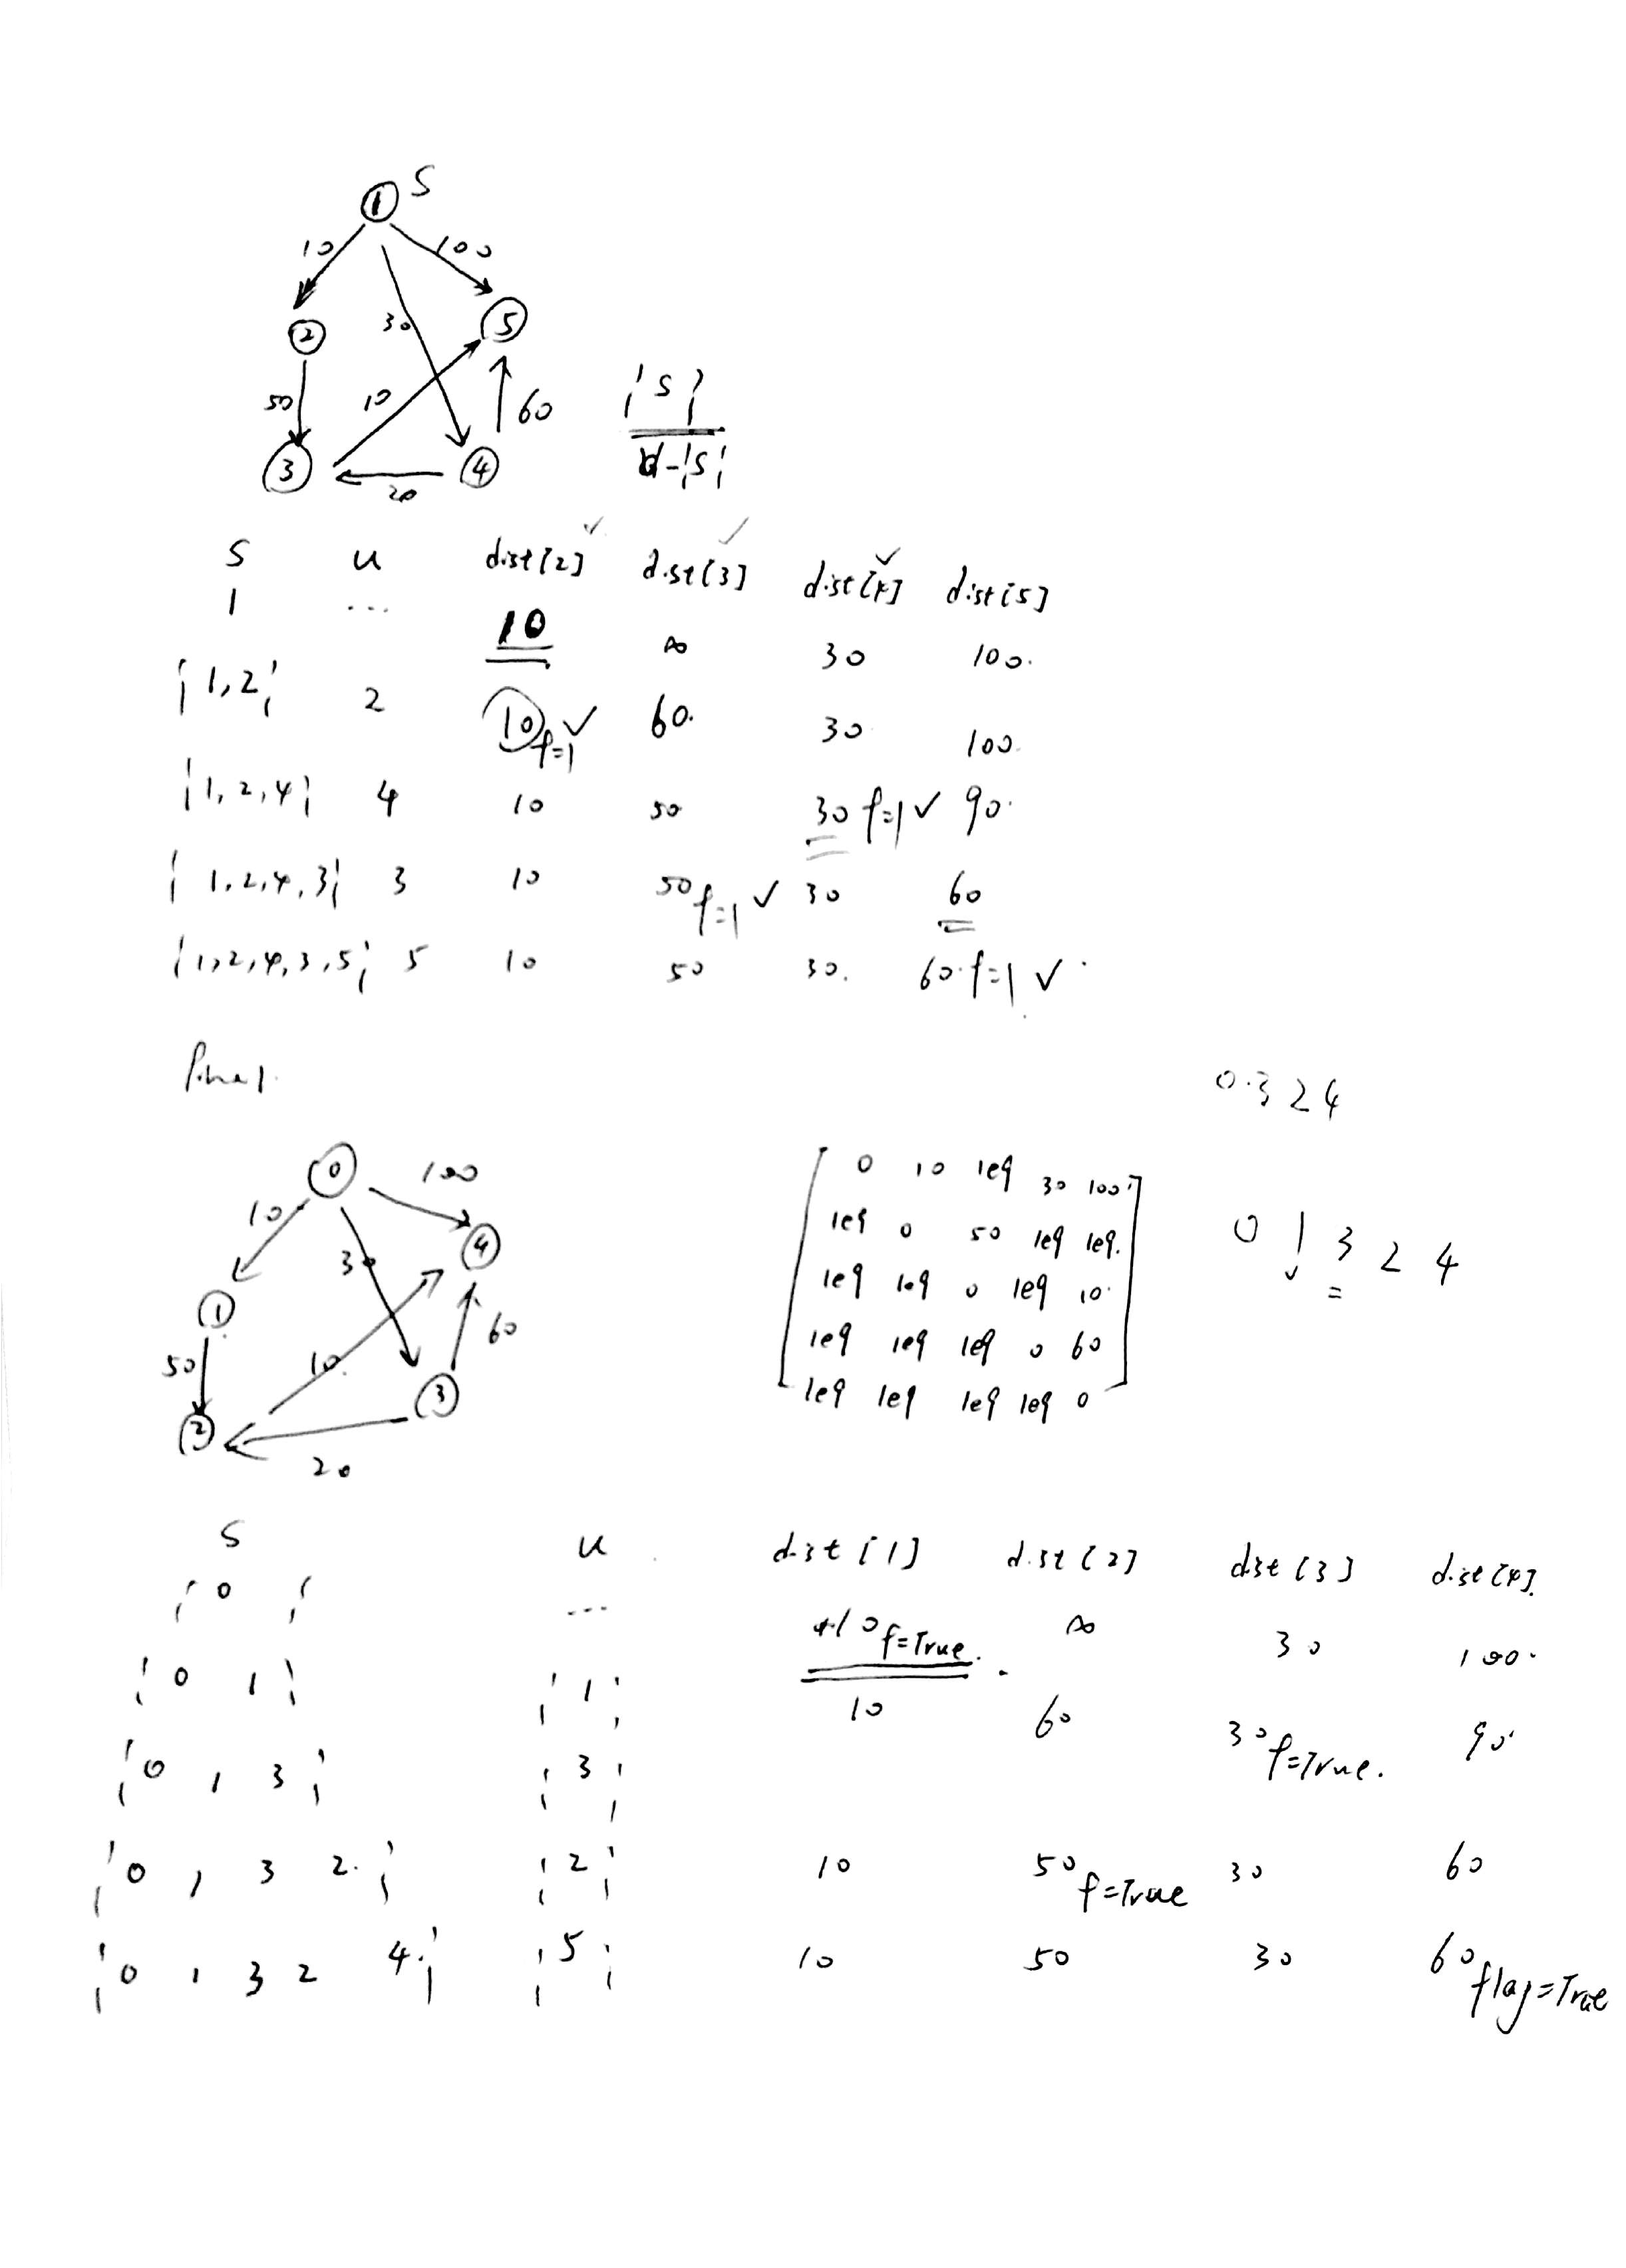 ① S
10 100
② 30 ⑤
50 10 60 {S}
③ 20 ④ U-{S}
S u dist[2] ✓ dist[3] ✓ dist[4] ✓ dist[5]
1 ... 10 ∞ 30 100.
{1,2} 2 10 f=1 ✓ 60. 30 100.
{1,2,4} 4 10 50 30 f=1 ✓ 90.
{1,2,4,3} 3 10 50 f=1 ✓ 30 60
{1,2,4,3,5} 5 10 50 30. 60. f=1 ✓
final.
0.324
⓪ 100
10 ④
30
① 60
50 10.
② ③
20
0 10 1e9 30 100
1e9 0 50 1e9 1e9.
1e9 1e9 0 1e9 10.
1e9 1e9 1e9 0 60
1e9 1e9 1e9 1e9 0
0 1 3 2 4
S u dist[1] dist[2] dist[3] dist[4].
{0 } ... 10 f=True. ∞ 30 100.
{0 1} {1} 10 60 30 f=True. 90.
{0, 3} {3}
{0, 3 2.} {2} 10 50 f=True 30 60
{0 1 3 2 4.} {5} 10 50 30 60 flag=True